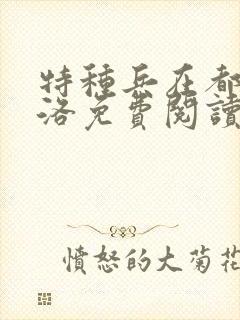 特種兵在都
洛免費閱讀
憤怒的大菊花